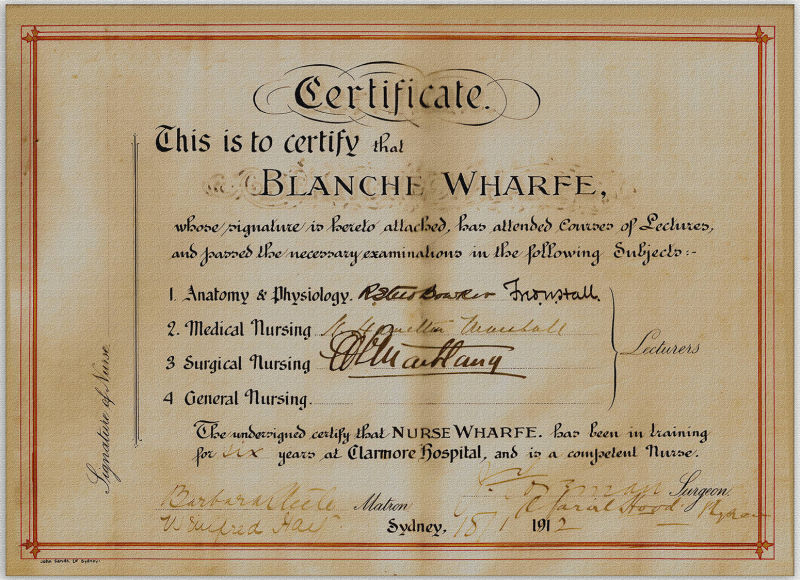 Certificate.
This is to certify that
BLANCHE WHARFE,
whose signature is hereto attached, has attended Courses of Lectures,
and passed the necessary examinations in the following Subjects:-
1. Anatomy & Physiology.
2. Medical Nursing
3 Surgical Nursing
4 General Nursing.
Lecturers
Signature of Nurse.
The undersigned certify that NURSE WHARFE. has been in training
for six years at Clarmore Hospital, and is a competent Nurse.
Surgeon.
Barbara Matron
Winifred
Sydney, 15 1 1912
John Sands, Ld Sydney.